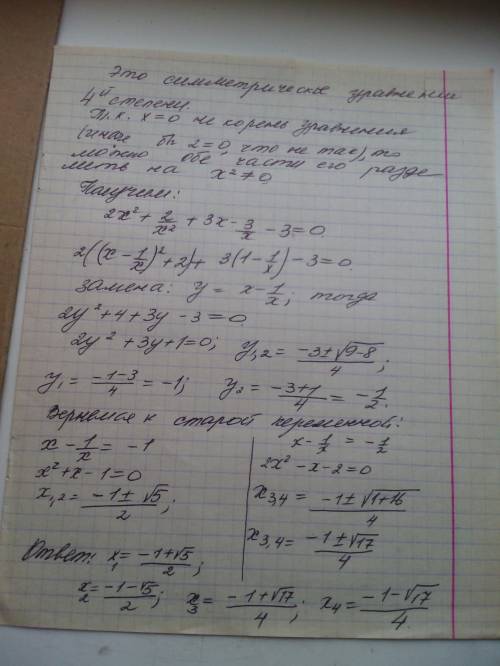 Это симметрическое уравнение
4й степени.
Т.к. x=0 не корень уравнения
(иначе бы 2=0, что не так), то
можно обе части его разде
лить на x² ≠ 0
Получаем:
2x² + 2/x² + 3x - 3/x - 3 = 0
2((x - 1/x)² + 2) + 3(1 - 1/x) - 3 = 0
замена: y = x - 1/x; тогда
2y² + 4 + 3y - 3 = 0
2y² + 3y + 1 = 0; y1,2 = (-3 ± √(9-8))/4;
y1 = (-1-3)/4 = -1; y2 = (-3+1)/4 = -1/2.
Вернемся к старой переменной:
x - 1/x = -1
x² + x - 1 = 0
x1,2 = (-1 ± √5)/2;
x - 1/x = -1/2
2x² - x - 2 = 0
x3,4 = (-1 ± √(1+16))/4
x3,4 = (-1 ± √17)/4
Ответ: x1 = (-1+√5)/2;
x2 = (-1-√5)/2; x3 = (-1+√17)/4; x4 = (-1-√17)/4.